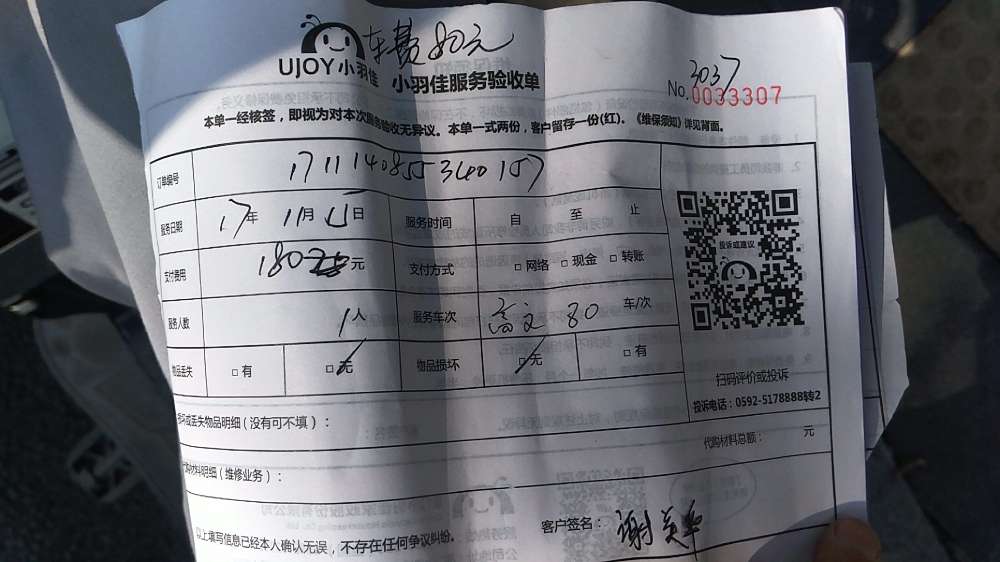 车费80元
UJOY小羽佳 小羽佳服务验收单
3037
No.0033307
本单一经核签,即视为对本次服务验收无异议。本单一式两份,客户留存一份(红)。《维保须知》详见背面。
订单编号 1711140855340157
服务日期 17年 11月 15日 服务时间 自 至 止
支付费用 180元 支付方式 □网络 □现金 □转账
服务人数 1人 服务车次 80 车/次
物品丢失 □有 □无 物品损坏 □无 □有
投诉或建议
扫码评价或投诉
投诉电话:0592-5178888转2
损坏或丢失物品明细(没有可不填):
代购材料总额: 元
代购材料明细(维修业务):
以上填写信息已经本人确认无误,不存在任何争议纠纷。 客户签名:谢美